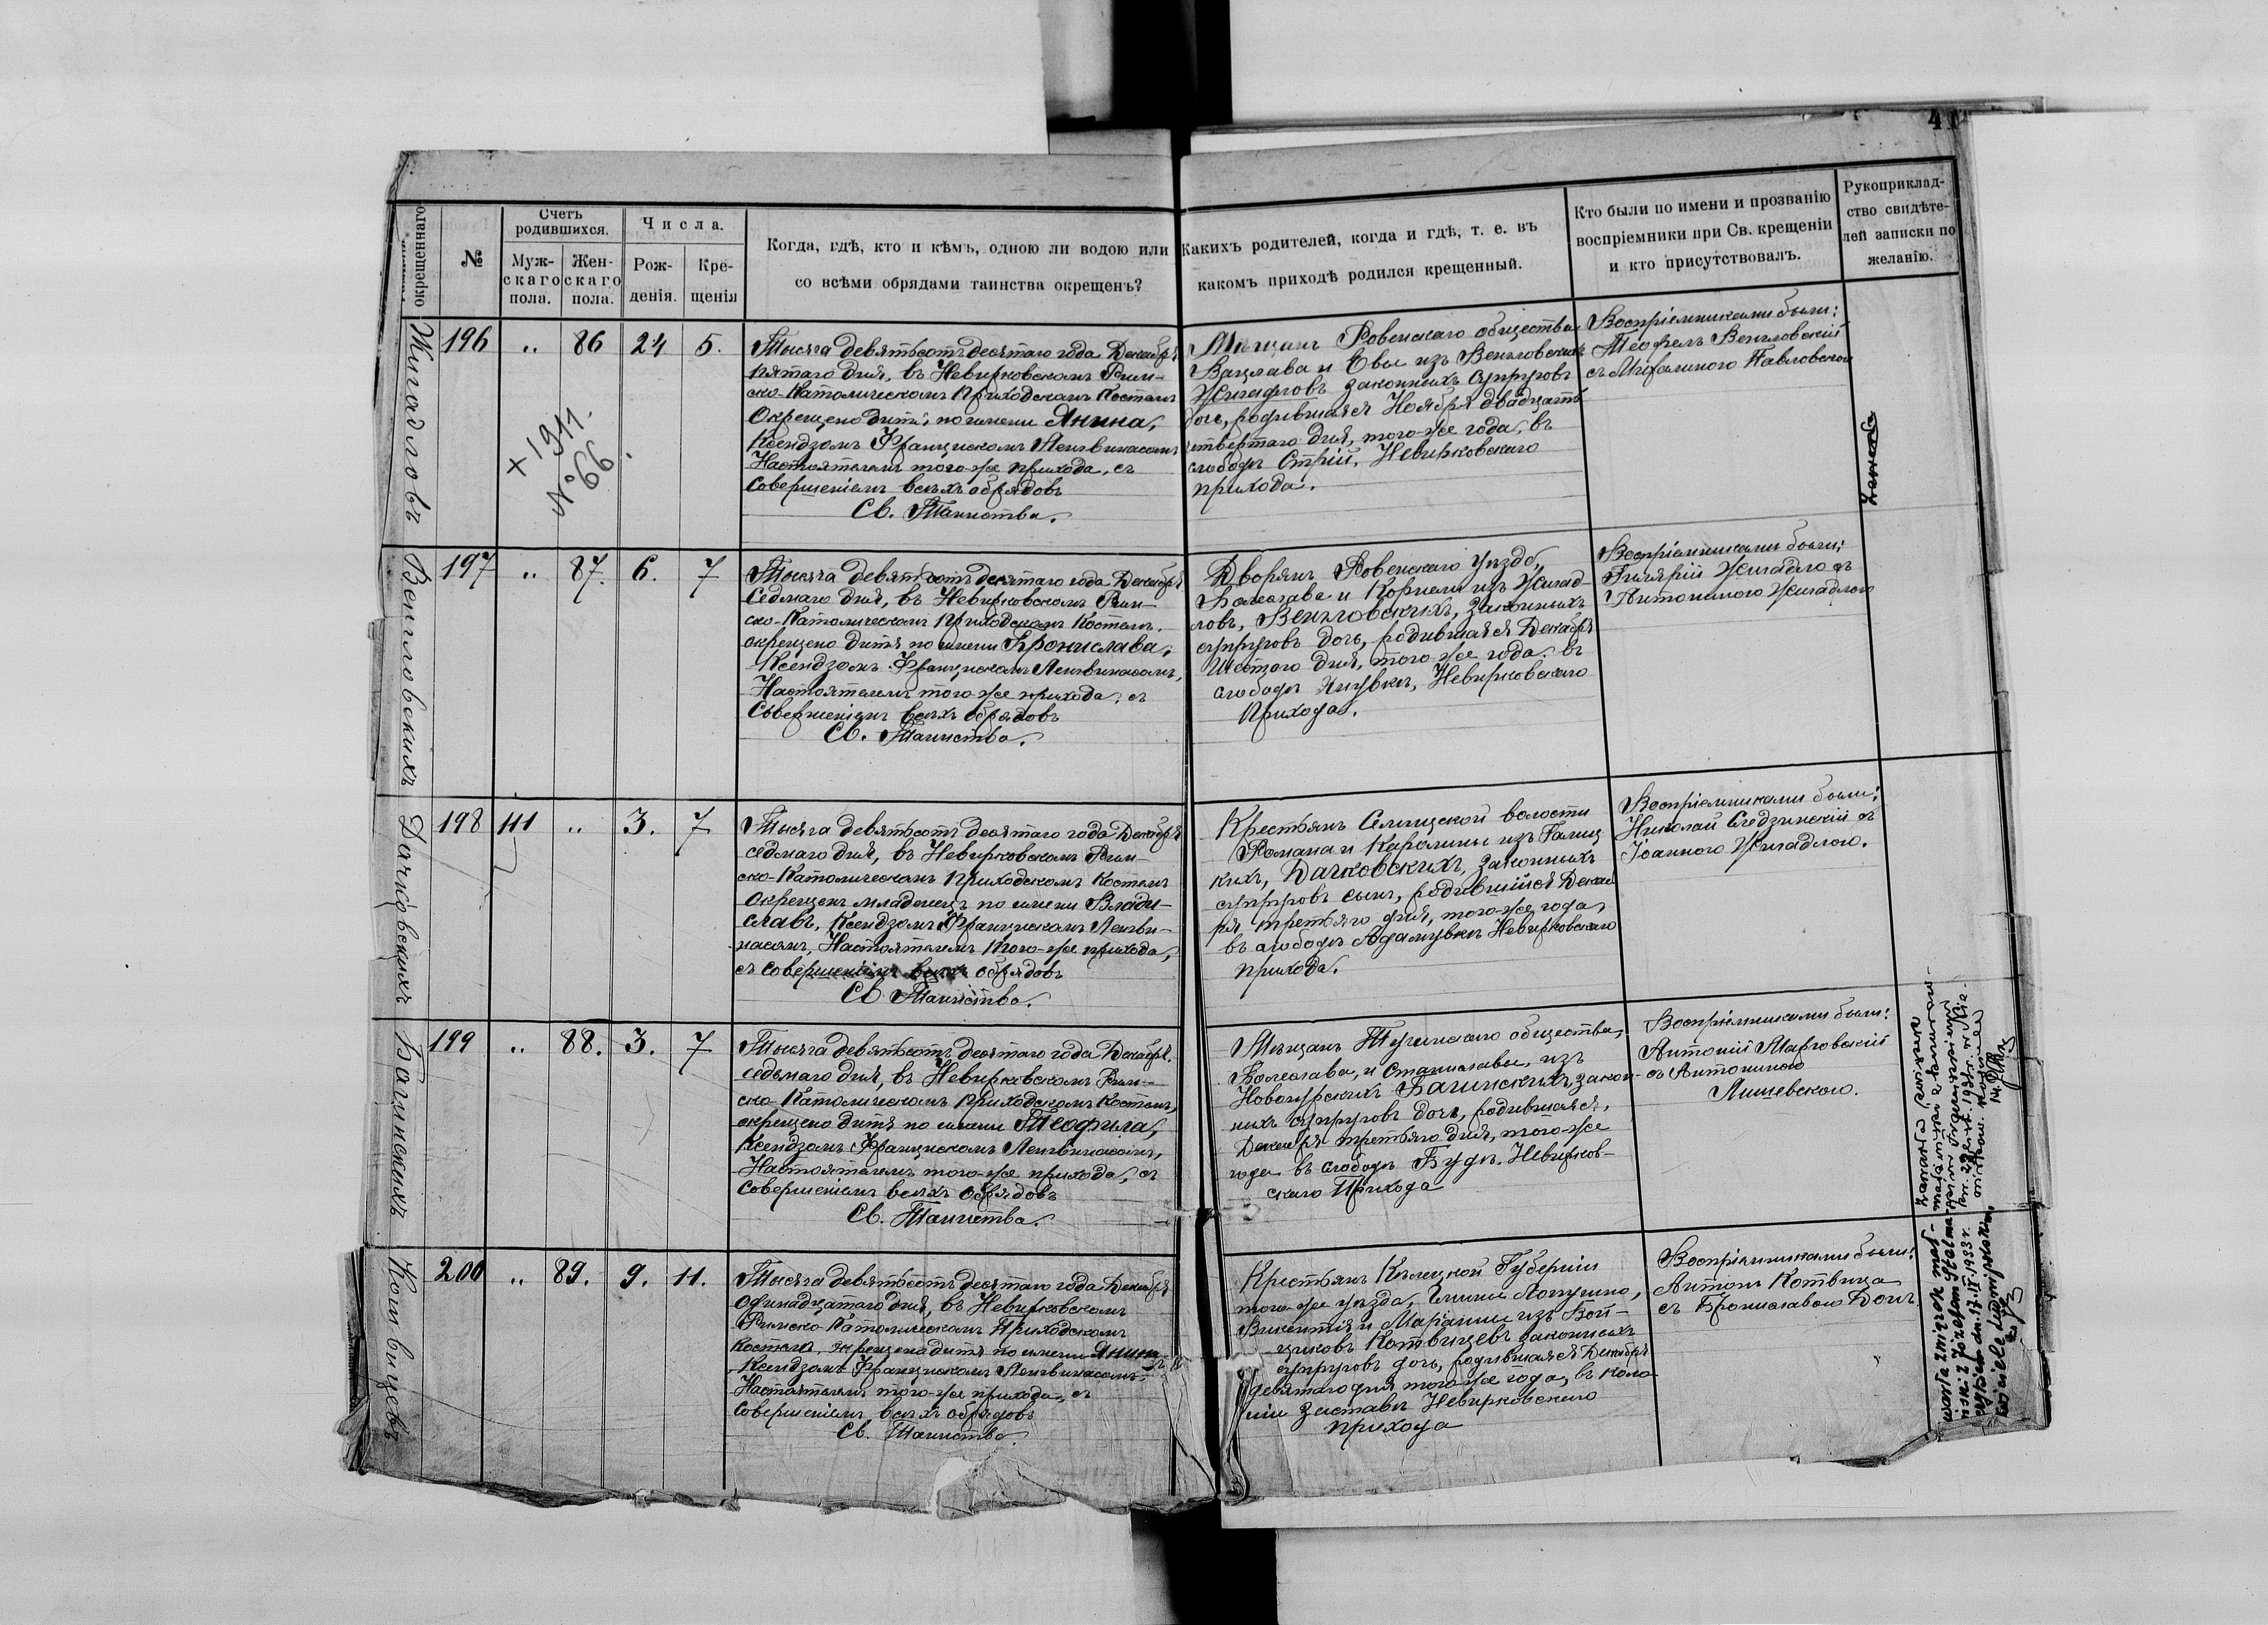 4
окрещеннаго
№
Счетъ родившихся.
Муж-скаго пола.
Жен-скаго пола.
Числа.
Рож-денія.
Кре-щенія
Когда, гдѣ, кто и кѣмъ, одною ли водою или
со всѣми обрядами таинства окрещенъ?
Какихъ родителей, когда и гдѣ, т. е. въ
какомъ приходѣ родился крещенный.
Кто были по имени и прозванію
воспріемники при Св. крещеніи
и кто присутствовалъ.
Рукоприклад-
ство свидѣте-
лей записки по
желанію.
Жигадловъ
196 „ 86 24 5.
+ 1911.
№ 66.
Тысяча девятьсотъ десятаго года Декабря
пятаго дня, въ Невирковскомъ Рим-
ско-Католическомъ Приходскомъ Костелѣ
Окрещено дитя по имени Янина,
Ксендзомъ Францискомъ Ленгвинасомъ
Настоятелемъ того-же прихода, съ
совершеніемъ всѣхъ обрядовъ
Св. Таинства.
Мѣщанъ Ровенскаго общества
Вацлава и Евы изъ Венгловскихъ
Жигадловъ законныхъ супруговъ
дочь, родившаяся Ноября двадцать
четвертаго дня, того-же года, въ
слободѣ Стрій, Невирковскаго
прихода.
Воспріемниками были:
Теофилъ Венгловскій
съ Михалиною Павловскою
Венгловскихъ
197 „ 87. 6. 7
Тысяча девятьсотъ десятаго года Декабря
Седмаго дня, въ Невирковскомъ Рим-
ско-Католическомъ Приходскомъ Костелѣ,
окрещено дитя по имени Бронислава,
Ксендзомъ Францискомъ Ленгвинасомъ,
Настоятелемъ того-же прихода, съ
Совершеніемъ всѣхъ обрядовъ
Св. Таинства.
Дворянъ Ровенскаго уѣзда,
Болеслава и Корнели изъ Жигад-
ловъ, Венгловскихъ, законныхъ
супруговъ дочь, родившаяся Декабря
Шестаго дня, того-же года, въ
слободѣ Невирковскаго
Прихода.
Воспріемниками были:
Гилярій Жигадло съ
Антониною Жигадлою
Дачковскихъ
198 111 „ 3. 7
Тысяча девятьсотъ десятаго года Декабря
седмаго дня, въ Невирковскомъ Рим-
ско-Католическомъ Приходскомъ Костелѣ
Окрещенъ младенецъ по имени Влади-
славъ, Ксендзомъ Францискомъ Ленгви-
насомъ, Настоятелемъ того-же прихода,
съ совершеніемъ всѣхъ обрядовъ
Св. Таинства.
Крестьянъ Селищской волости
Романа и Каролины изъ Галиц
кихъ, Дачковскихъ, законныхъ
супруговъ сынъ, родившійся Декаб
ря третьяго дня, того-же года,
въ слободѣ Адамувкѣ Невирковскаго
прихода.
Воспріемниками были:
Николай Следзинскій съ
Іоанною Жигадлою.
Багинскихъ
199 „ 88. 3. 7
Тысяча девятьсотъ десятаго года Декабря.
седьмаго дня, въ Невирковскомъ Рим-
ско-Католическомъ Приходскомъ Костелѣ,
окрещено дитя по имени Теофила,
Ксендзомъ Францискомъ Ленгвинасомъ,
Настоятелемъ того-же прихода, съ
совершеніемъ всѣхъ обрядовъ
Св. Таинства.
Мѣщанъ Тучинскаго общества,
Болеслава, и Станиславы, изъ
Новогурскихъ Багинскихъ закон-
ныхъ супруговъ дочь, родившаяся,
Декабря третьяго дня, того-же
года въ слободѣ Будѣ. Невирков-
скаго Прихода
Воспріемниками были:
Антоній Марговскій
съ Антониною
Котвицевъ
200 „ 89. 9. 11.
Тысяча девятьсотъ десятаго года Декабря
одинадцатаго дня, въ Невирковскомъ
Римско-Католическомъ Приходскомъ
Костелѣ, окрещена дитя по имени Янин
Ксендзомъ Францискомъ Ленгвинасомъ
Настоятелемъ того-же прихода, съ
совершеніемъ всѣхъ обрядовъ
Св. Таинства.
Крестьянъ Кѣлецкой Губерніи
того-же уѣзда, Гмины Лопушно,
Викентія и Маріанны изъ Вой-
циковъ Котвицевъ законныхъ
супруговъ дочь, родившаяся Декабря
девятаго дня того-же года, въ коло
ніи Заставѣ Невирковскаго
прихода
Воспріемниками были:
Антонъ Котвица
съ Брониславою Донъ
zawarła związek mał-